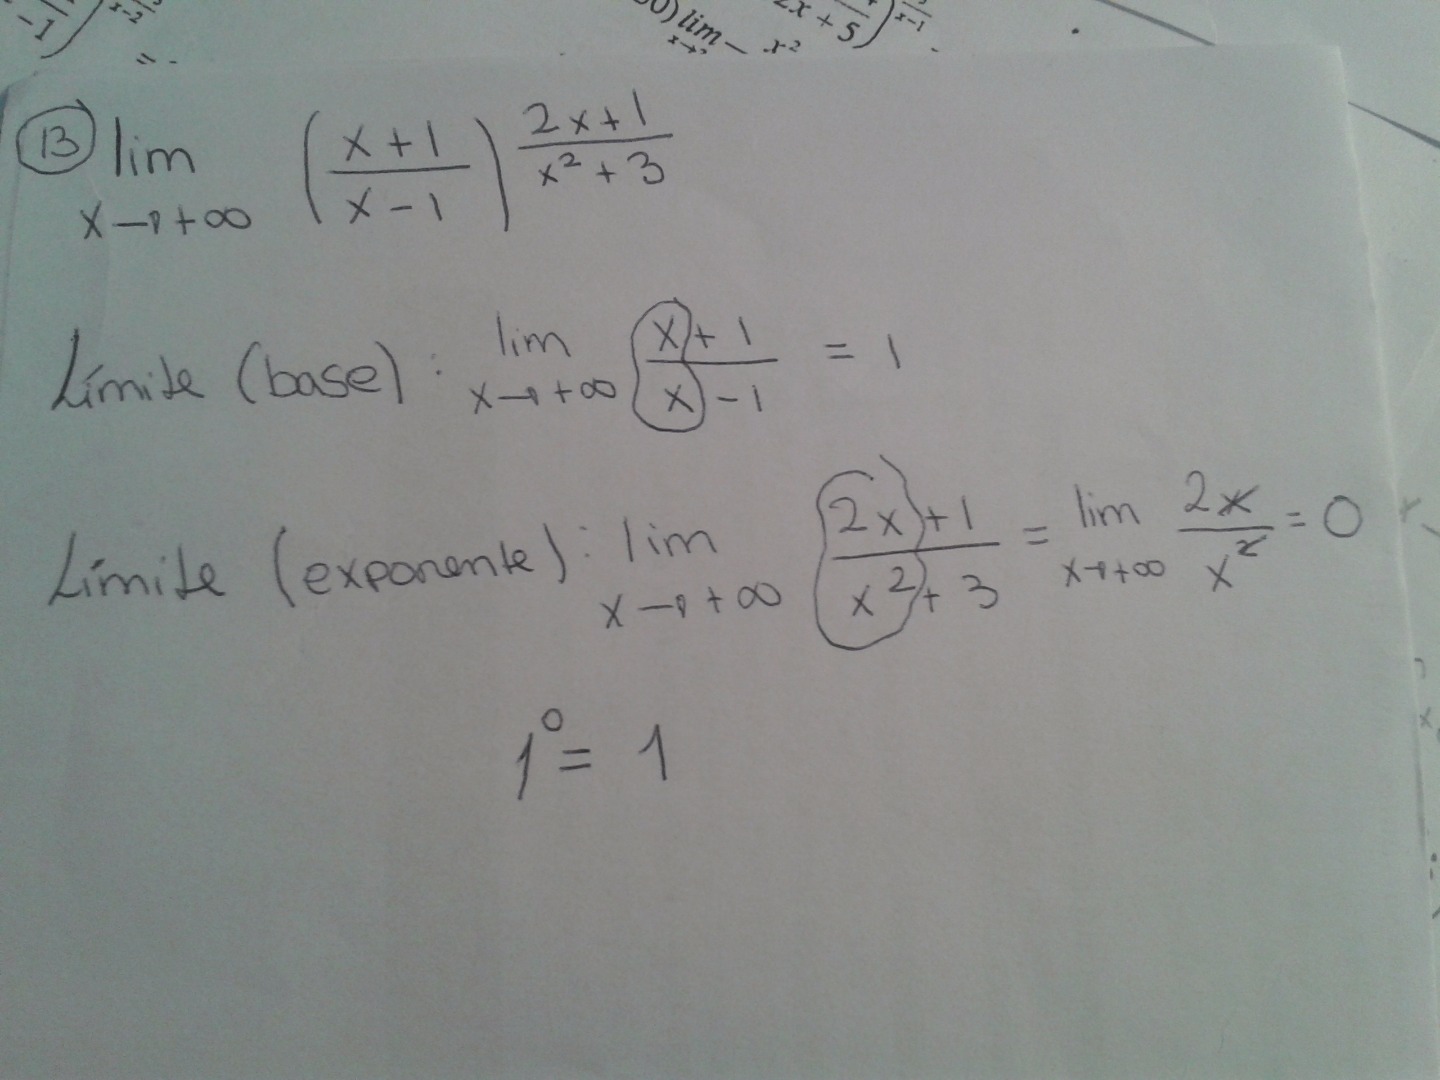 -1) x-2 = .
30) lim x→ - x² 2x + 5) x-1 .
13 lim x→+∞ (x+1 / x-1)^(2x+1 / x²+3)
Límite (base): lim x→+∞ x+1 / x-1 = 1
Límite (exponente): lim x→+∞ 2x+1 / x²+3 = lim x→+∞ 2x / x² = 0
1⁰ = 1